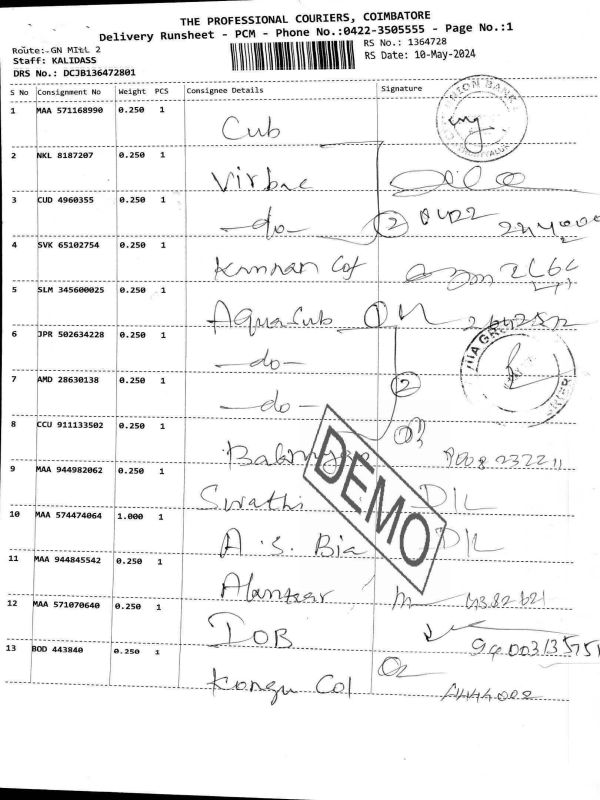 THE PROFESSIONAL COURIERS, COIMBATORE
Delivery Runsheet - PCM - Phone No.:0422-3505555 - Page No.:1
Route: GN MILL 2
RS No.: 1364728
Staff: KALIDASS
RS Date: 10-May-2024
DRS No.: DCJB136472801
S No Consignment No Weight PCS Consignee Details Signature
1 MAA 571168990 0.250 1 Cub
2 NKL 8187207 0.250 1 Virbac
3 CUD 4960355 0.250 1 -do- 2 0422
4 SVK 65102754 0.250 1
5 SLM 345600025 0.250 1 Aqua Sub 1
6 JPR 502634228 0.250 1 -do-
7 AMD 28630138 0.250 1 -do- 2
8 CCU 911133502 0.250 1
9 MAA 944982062 0.250 1 Swathi D/L
10 MAA 574474064 1.000 1 A. S. Bia D/L
11 MAA 944845542 0.250 1
12 MAA 571070640 0.250 1 IOB
13 BOD 443840 0.250 1 Kongu Col
DEMO